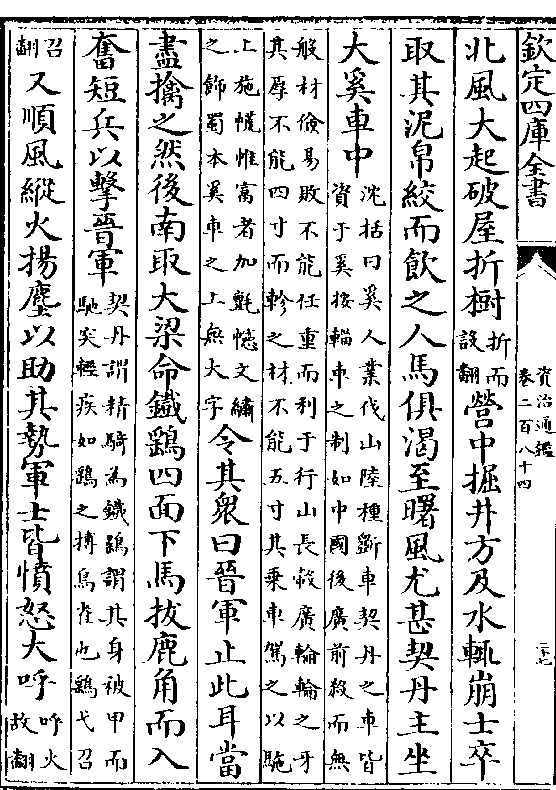 欽定四庫全書
資治通鑑
卷二百八十四
北風大起破屋折樹
折而
設翻
營中掘井方及水輒崩士卒
取其泥帛絞而飲之人馬俱渴至曙風尤甚契丹主坐
大奚車中
沈括曰奚人業伐山陸種斵車契丹之車皆
資于奚按輜車之制如中國後廣前殺而無
般材儉易敗不能任重而利于行山長轂廣輪輪之牙
其厚不能四寸而軫之材不能五寸其乗車駕之以駞
上施幰惟富者加氊幰文繡
之飾蜀本奚車之上無大字
令其衆曰晉軍止此耳當
盡擒之然後南取大梁命鐵鷂四面下馬拔鹿角而入
奮短兵以擊晉軍
契丹謂精騎為鐵鷂謂其身被甲而
馳突輕疾如鷂之搏鳥雀也鷂弋召
召
翻
又順風縱火揚塵以助其勢軍士皆憤怒大呼
呼火
故翻